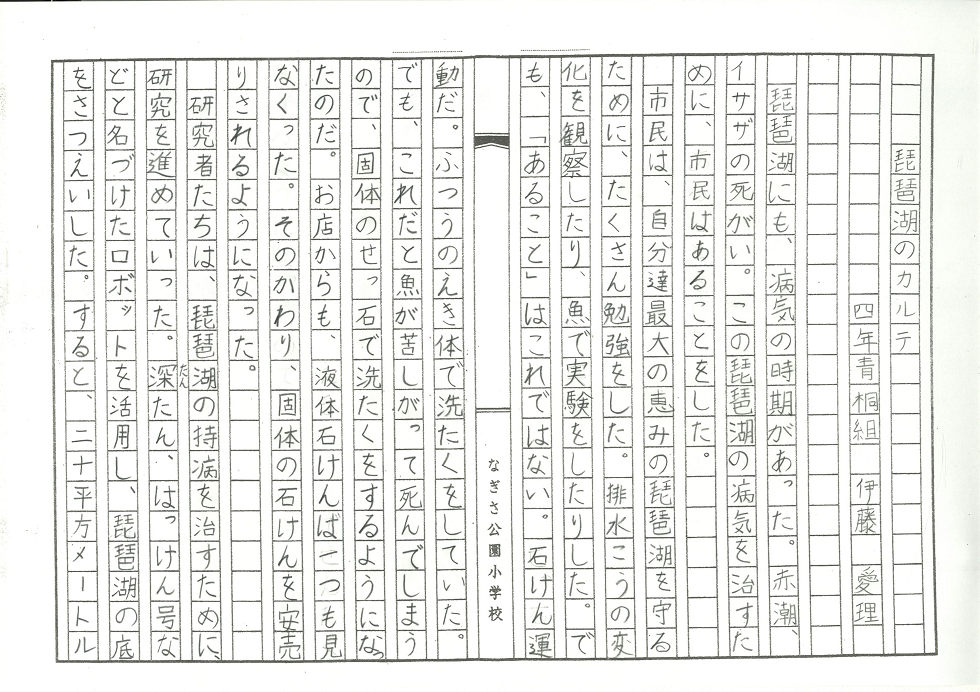 琵琶湖のカルテ
四年青桐組 伊藤 愛理
琵琶湖にも、病気の時期があった。赤潮、
イサザの死がい。この琵琶湖の病気を治すた
めに、市民はあることをした。
市民は、自分達最大の恵みの琵琶湖を守る
ために、たくさん勉強をした。排水こうの変
化を観察したり、魚で実験をしたりした。で
も、「あること」はこれではない。石けん運
なぎさ公園小学校
動だ。ふつうのえき体で洗たくをしていた。
でも、これだと魚が苦しがって死んでしまう
ので、固体のせっ石で洗たくをするようになっ
たのだ。お店からも、液体石けんは一つも見
なくった。そのかわり、固体の石けんを安売
りされるようになった。
研究者たちは、琵琶湖の持病を治すために、
研究を進めていった。深たん、はっけん号な
たん
どと名づけたロボットを活用し、琵琶湖の底
をさつえいした。すると、二十平方メートル